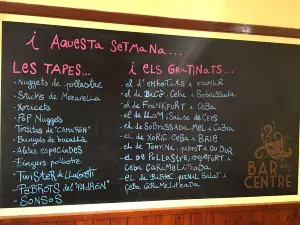 i AQUESTA SETMANA...
LES TAPES...
- Nuggets de pollastre
- Sticks de Mozarella
- Xoricets
- Pop Nuggets
- Tortitas de "CAMARÓN"
- Bunyols de bacallà
- Alites especiades
- Fingers pollastre
- TWISTER de LLAGOSTÍ
- "PADRÓN"
- SONSOS
i ELS GRATINATS...
- el d'EMBOTITS
- el de BACÓ, Ceba i Sobrassada
- el de FRANKFURT i CEBA
- el de LLOM, Salsa de CEPS
- el de SOBRASSADA, MEL i CABRA
- el de XORIÇ, CEBA i BRIE
- el de TONYINA,
- el DE POLLASTRE, ROQUEFORT i
CEBA CARAMELITZADA
- el DE
CEBA CARAMELITZADA
BAR
CENTRE